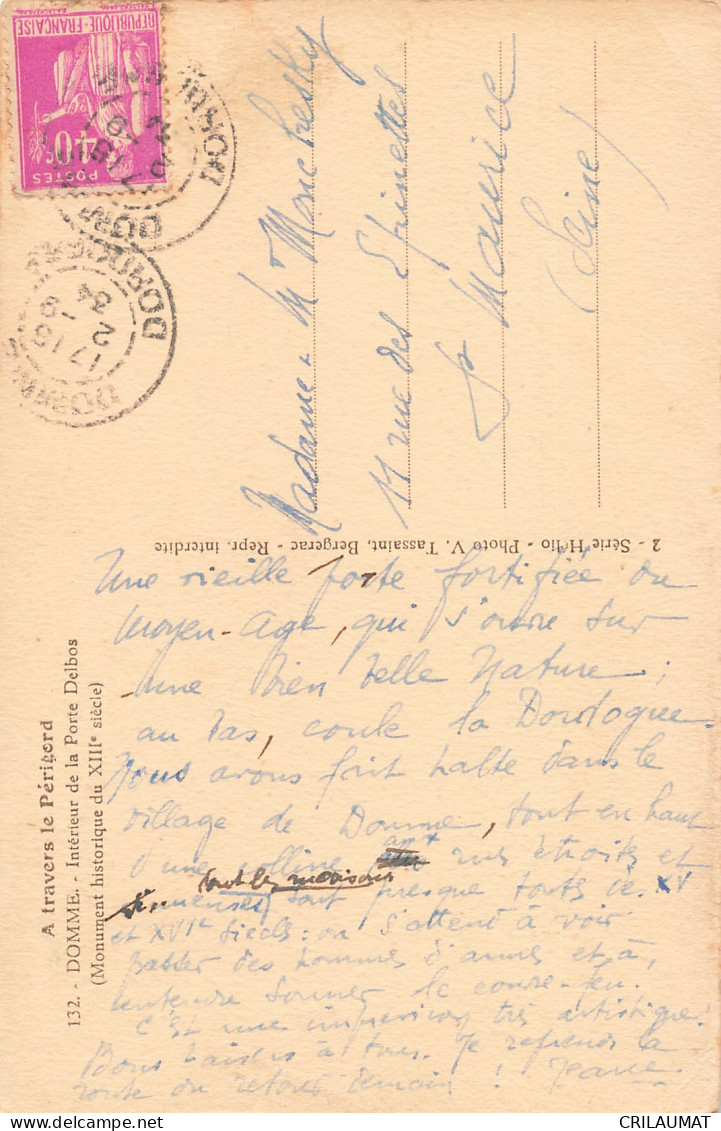 RÉPUBLIQUE-FRANÇAISE
POSTES
40c
DORDOGNE
17 15
2 - 9
34
Madame - Mr Monchesky
11 rue des Epinettes
St Maurice
(Seine)
2 - Série Hélio - Photo V. Tassaint, Bergerac - Repr. interdite
A travers le Périgord
132. - DOMME. - Intérieur de la Porte Delbos
(Monument historique du XIIIe siècle)
Une vieille porte fortifiée du
Moyen-Age, qui s'ouvre sur
une bien belle Nature ;
au bas, coule la Dordogne.
Nous avons fait halte dans le
village de Domme, tout en haut
d'une colline aux rues étroites et
sinueuses dont les maisons sont presque toutes de XV
et XVIe siècle : on s'attend à voir
passer des hommes d'armes et à
entendre sonner le couvre-feu.
C'est une impression très artistique.
Bons baisers à tous. Je reprends la
route du retour demain ! Jeanne.
CRILAUMAT